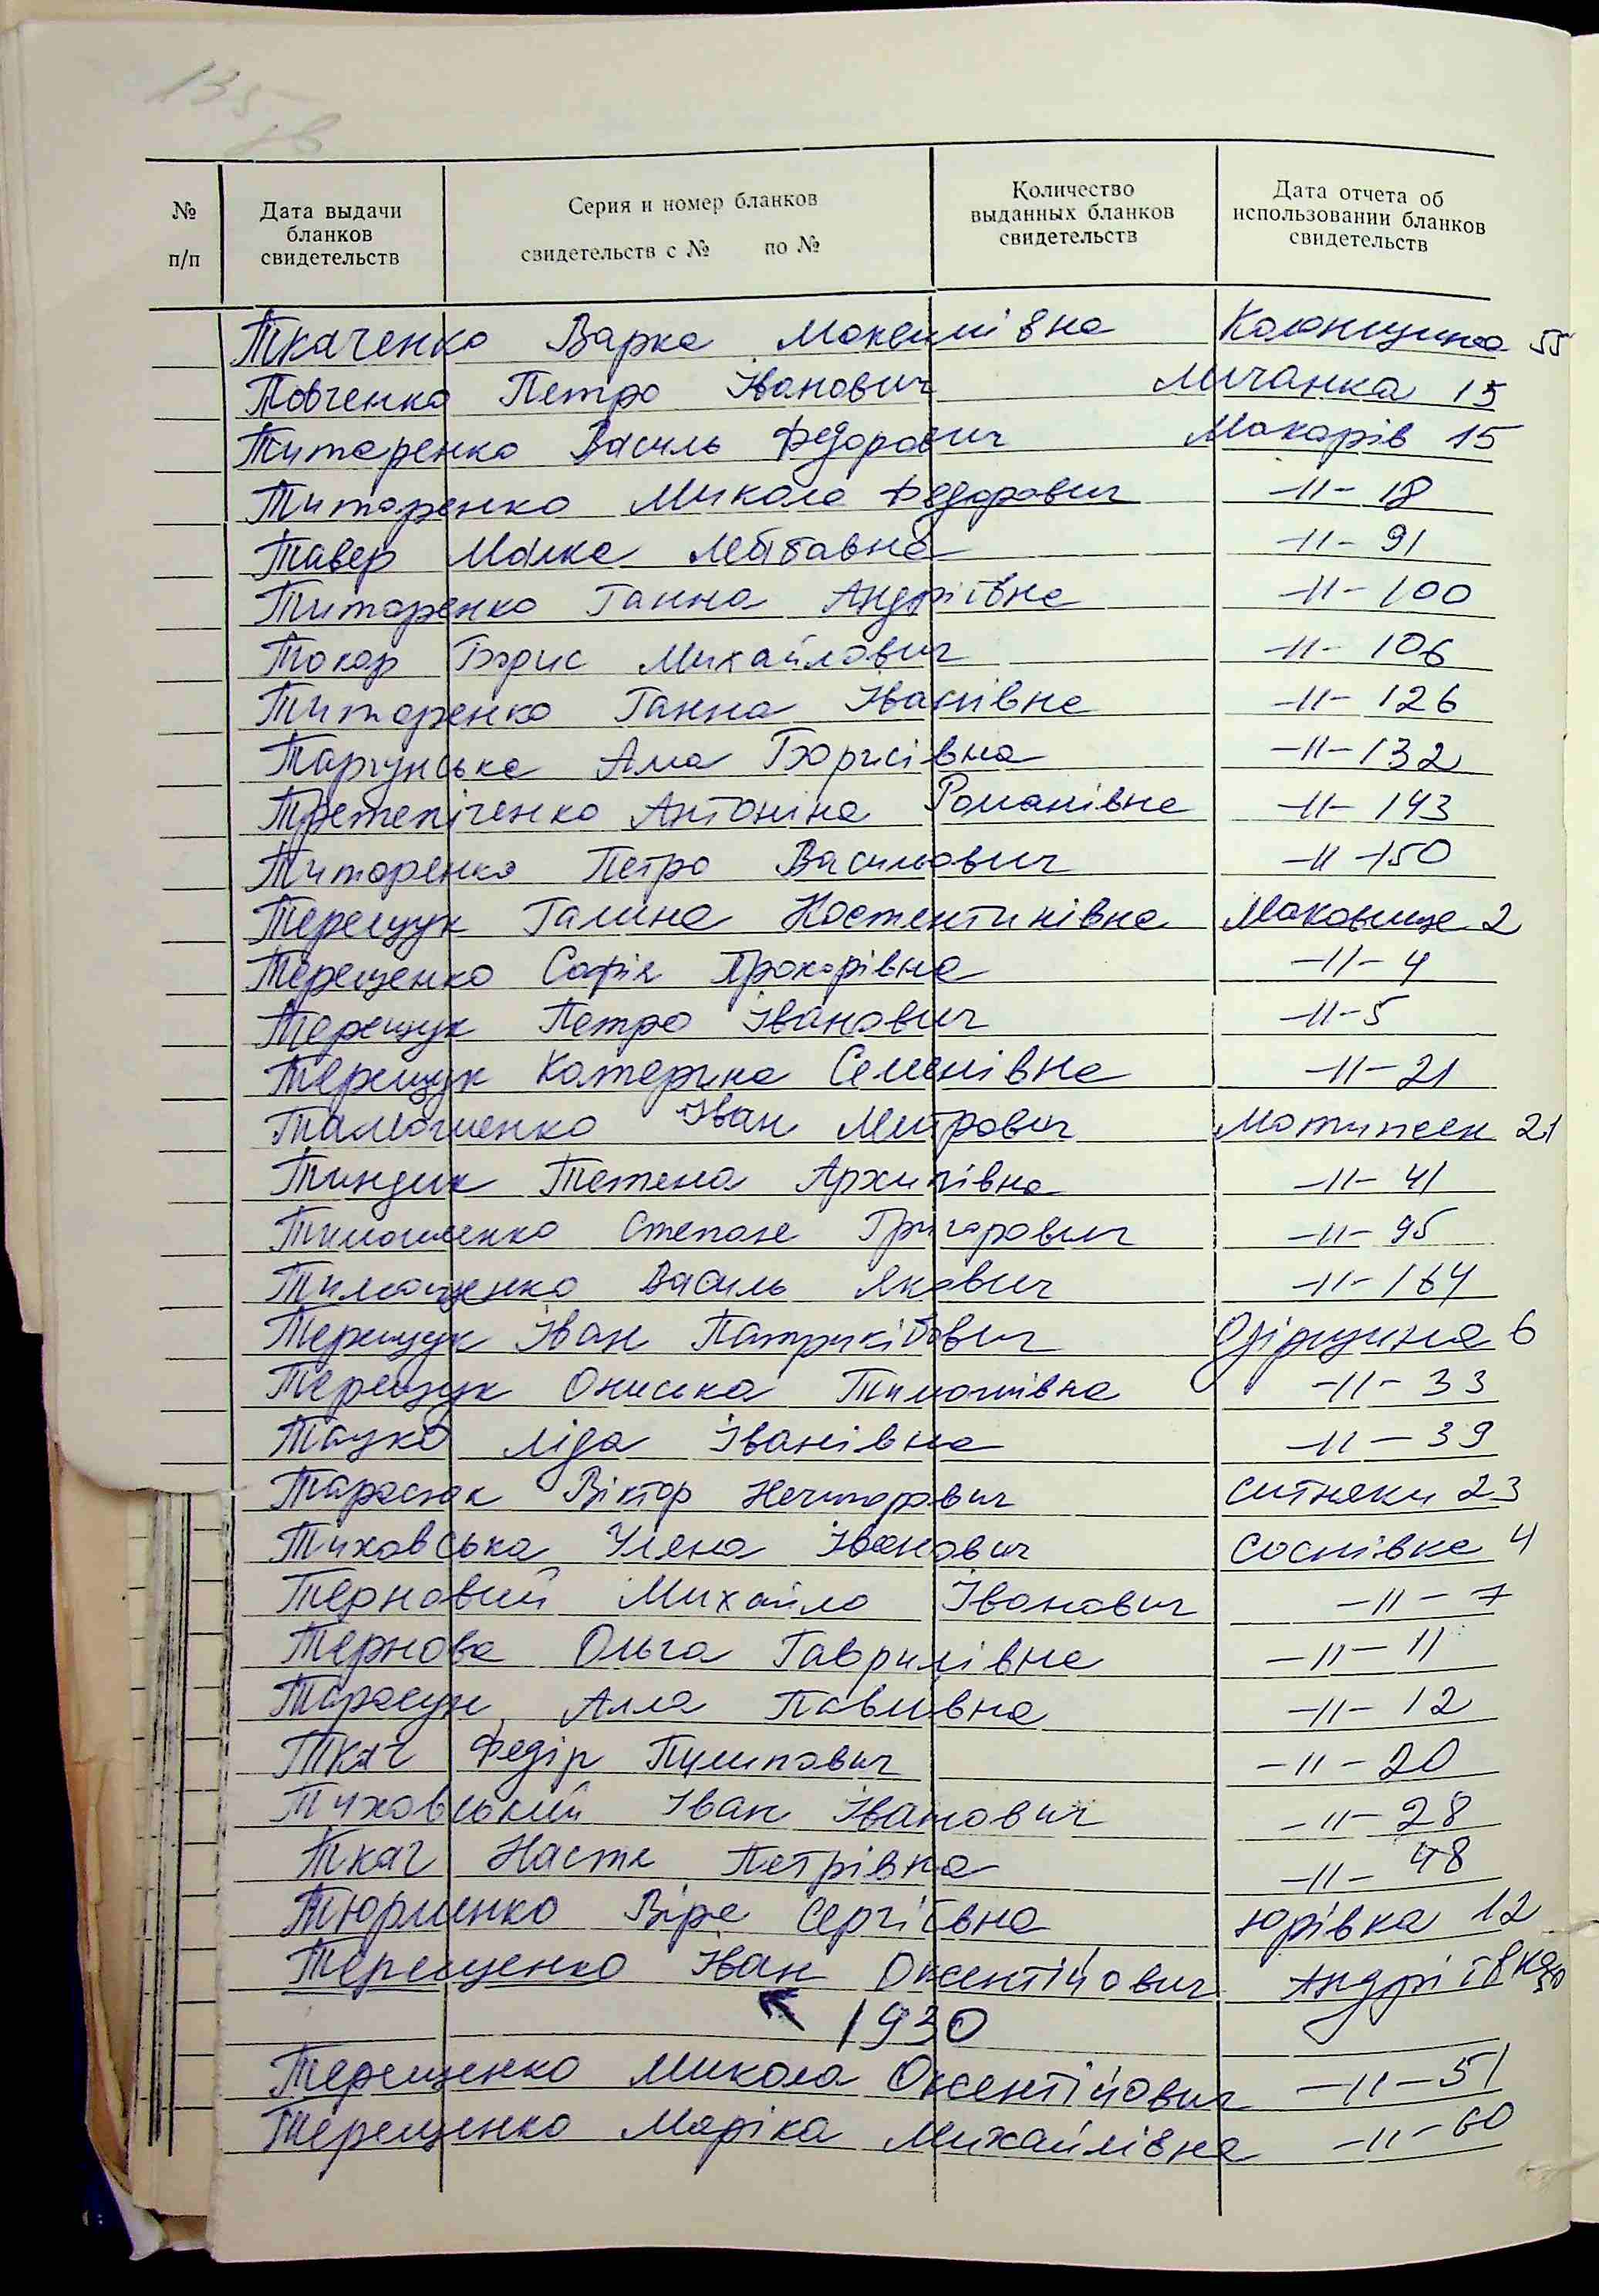 135
зв
№ п/п
Дата выдачи бланков свидетельств
Серия и номер бланков свидетельств с № по №
Количество выданных бланков свидетельств
Дата отчета об использовании бланков свидетельств
Ткаченко Варка Максимівна Колонщина 55
Товченко Петро Іванович Мичанка 15
Титаренко Василь Федорович Макарів 15
Титаренко Микола Федорович -11- 18
Тавер Малка Лейбавна -11- 91
Титаренко Ганна Андріївна -11- 100
Токар Борис Михайлович -11- 106
Титаренко Ганна Іванівна -11- 126
Таргунська Ала Борисівна -11- 132
Третепіченко Антоніна Романівна -11- 143
Титоренко Петро Васильович -11- 150
Терещук Галина Костентинівна Маковище 2
Терещенко Софія Прокорівна -11- 4
Терещук Петро Іванович -11- 5
Терещук Катерина Семенівна -11- 21
Тамошенко Іван Митрович Мотижен 21
Тиндик Тетена Архипівна -11- 41
Тимошенко Степане Григорович -11- 95
Тимощенко Василь Якович -11- 164
Терещук Іван Патрикійович Фірщина 6
Терещук Ониська Тимошівна -11- 33
Тацко Ліда Іванівна -11- 39
Тарасюк Віктор Нечипорович Ситняки 23
Тиховська Уляна Іванович Соснівка 4
Терновий Михайло Іванович -11- 7
Тернова Ольга Гаврилівна -11- 11
Тарасун Алла Павлівна -11- 12
Ткач Федір Пилипович -11- 20
Тиховський Іван Іванович -11- 28
Ткач Настя Петрівна -11- 48
Тюрменко Віра Сергіївна Юрівка 12
Терещенко Іван Оксентійович Андріївка 50
1930
Терещенко Микола Оксентійович -11- 51
Терещенко Маріка Михайлівна -11- 60